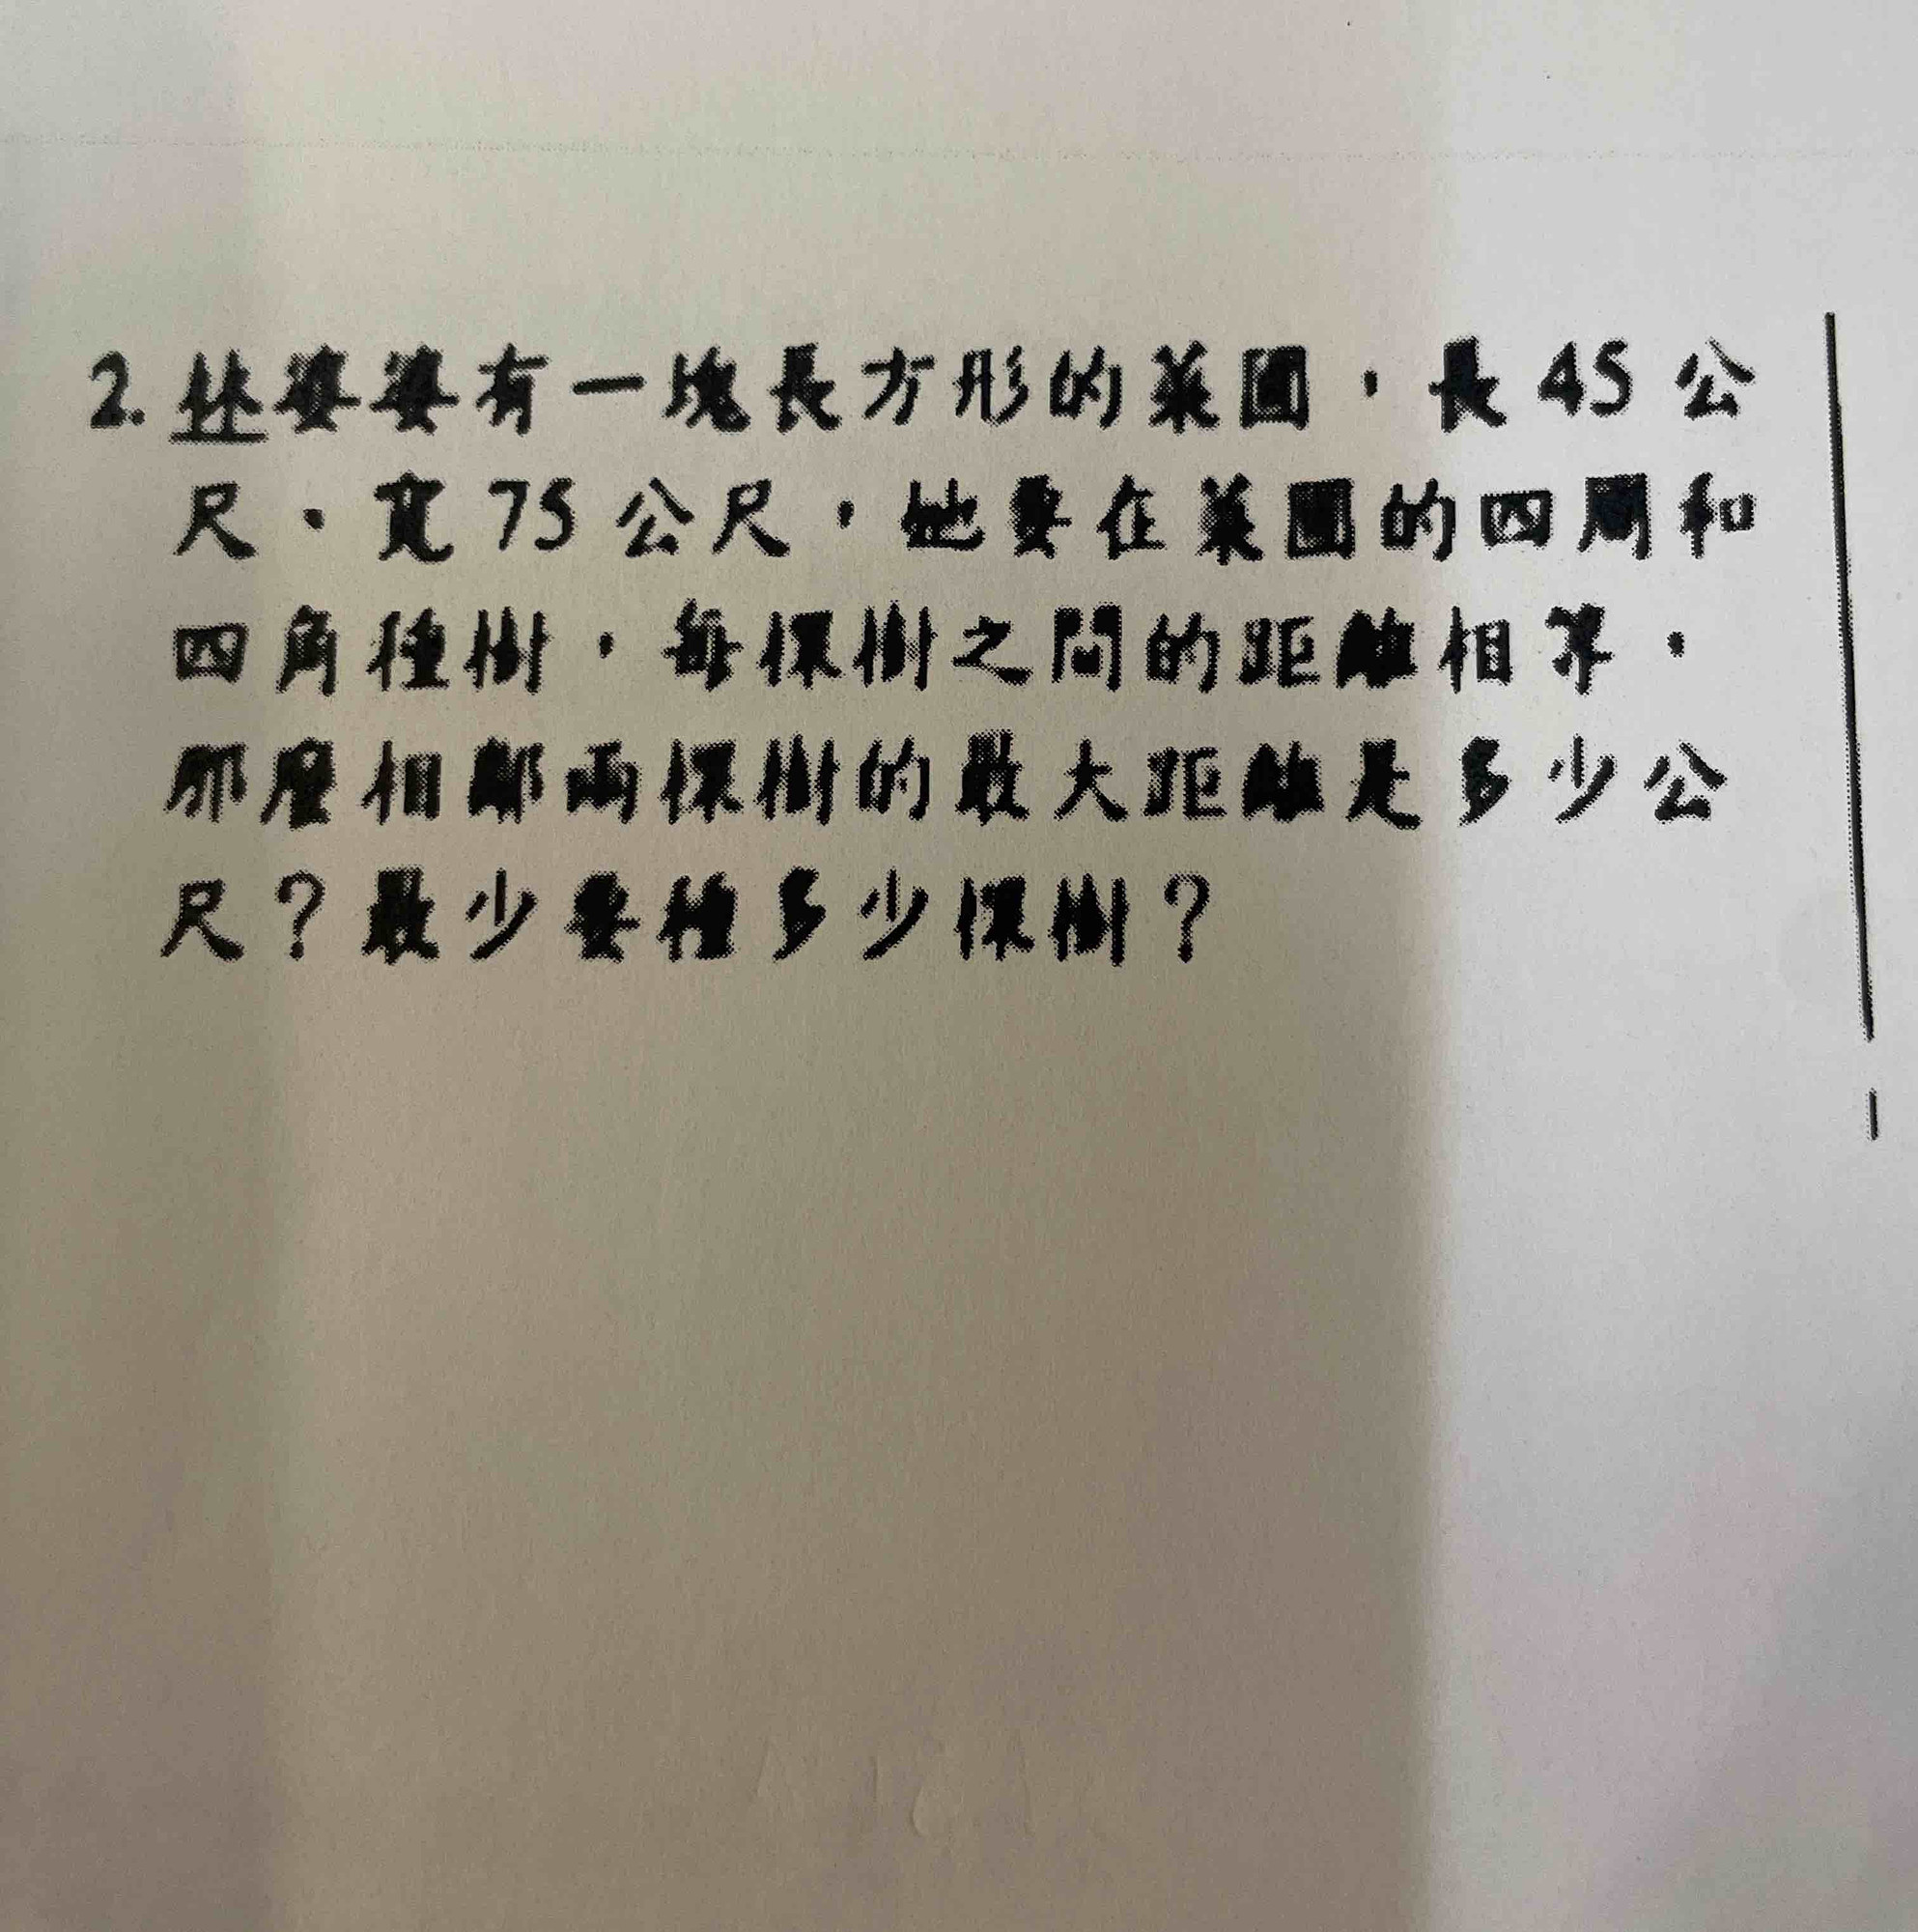 2. 林婆婆有一塊長方形的菜園，長 45 公
尺、寬 75 公尺，她要在菜園的四周和
四角種樹，每棵樹之間的距離相等，
那麼相鄰兩棵樹的最大距離是多少公
尺？最少要種多少棵樹？